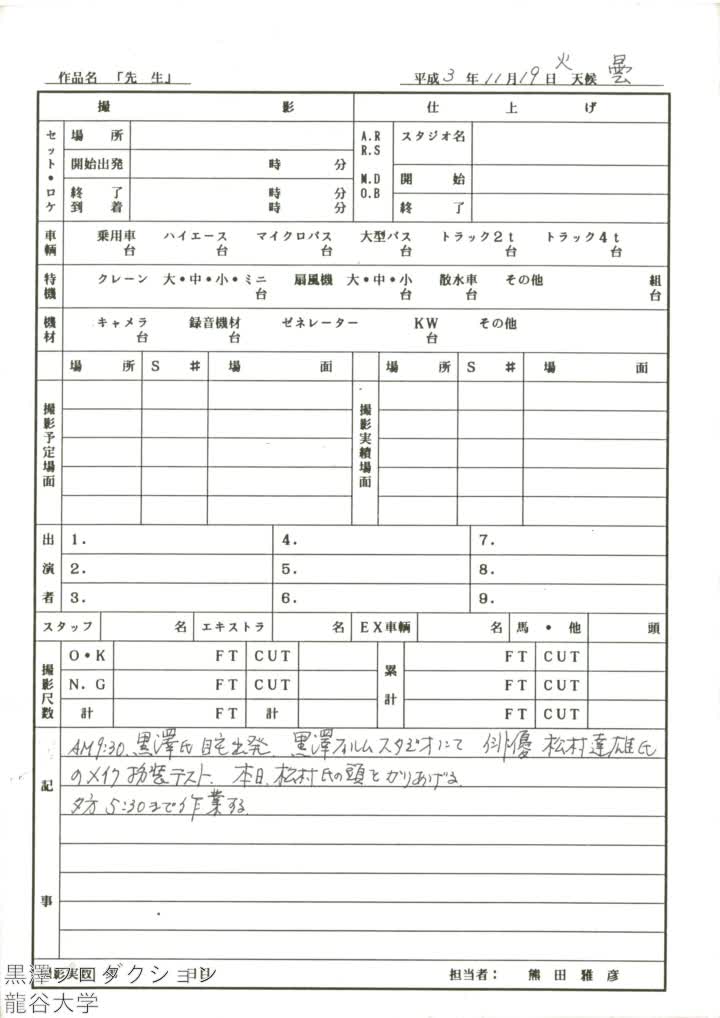 作品名 「先 生」 平成 3 年 11月 19日 火 天候 曇
撮 影 仕 上 げ
セット・ロケ 場 所 A.R R.S M.D O.B スタジオ名
開始出発 時 分 開 始
終 了 時 分
到 着 時 分 終 了
車輌 乗用車 台 ハイエース 台 マイクロバス 台 大型バス 台 トラック2t 台 トラック4t 台
特機 クレーン 大・中・小・ミニ 台 扇風機 大・中・小 台 散水車 台 その他 組 台
機材 キャメラ 台 録音機材 台 ゼネレーター KW 台 その他
場 所 S # 場 面 場 所 S # 場 面
撮影予定場面 撮影実績場面
出演者 1. 4. 7.
2. 5. 8.
3. 6. 9.
スタッフ 名 エキストラ 名 EX車輌 名 馬・他 頭
撮影尺数 O・K FT CUT 累計 FT CUT
N.G FT CUT FT CUT
計 FT 計 FT CUT
記事
AM9:30. 黒澤氏 自宅出発. 黒澤フィルムスタジオにて 俳優 松村達雄氏
のメイク扮装テスト. 本日、松村氏の頭とかりあげる.
夕方 5:30まで作業する.
担当者: 熊田雅彦
黒澤プロダクション
龍谷大学